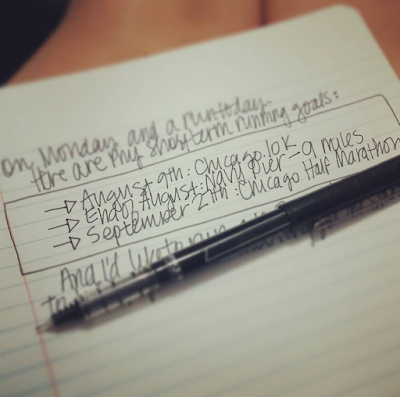 on Monday and a runtoday
Here are my short term running goals:
→ August 9th: Chicago 10K
→ End of August: Navy Pier - 9 miles
→ September 27th: Chicago Half Marathon
And I'd like to run